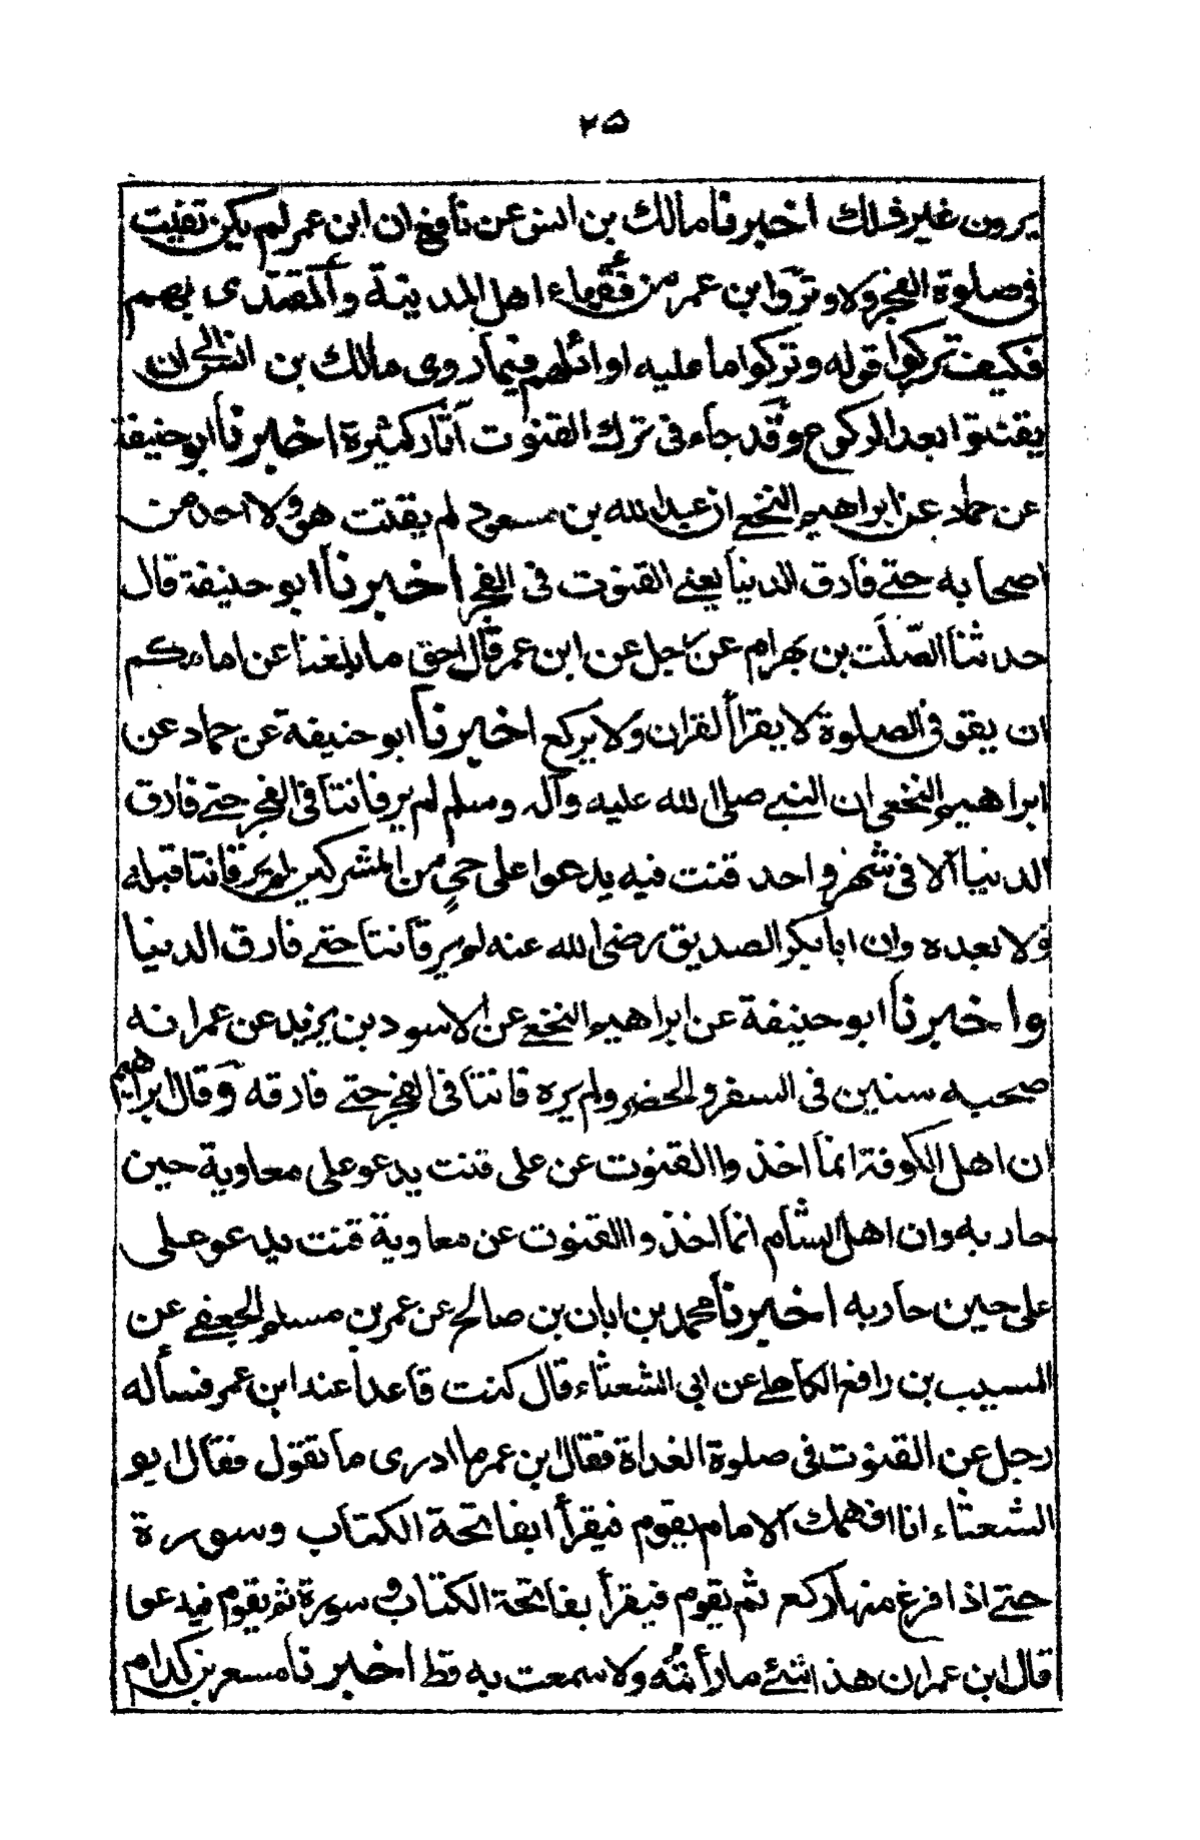 ۲۵
يرون غير ذلك اخبرنا مالك بن انس عن نافع ان ابن عمر لم يكن يقنت
فى صلوة الفجر ولا وترو ابن عمر من فقهاء اهل المدينة والمقتدى بهم
فكيف تركوا قوله وتركوا ما عليه اوائلهم فيما روى مالك بن انس الى ان
يقنتوا بعد الركوع وقد جاء فى ترك القنوت آثار كثيرة اخبرنا ابو حنيفة
عن حماد عن ابراهيم النخعى ان عبد الله بن مسعود لم يقنت هو ولا احد من
اصحابه حتى فارق الدنيا يعنى القنوت فى الفجر اخبرنا ابو حنيفة قال
حدثنا الصّلت بن بهرام عن رجل عن ابن عمر قال احق ما بلغنا عن امامكم
ان يقو فى الصلوة لا يقرأ القران ولا يركع اخبرنا ابو حنيفة عن حماد عن
ابراهيم النخعى ان النبى صلى الله عليه وآله وسلم لم ير قانتا فى الفجر حتى فارق
الدنيا الا فى شهر واحد قنت فيه يدعوا على حىٍ من المشركين لم ير قانتا قبله
ولا بعده وان ابا بكر الصديق رضى الله عنه لم ير قانتا حتى فارق الدنيا
واخبرنا ابو حنيفة عن ابراهيم النخعى عن الاسود بن يزيد عن عمر انه
صحبه سنين فى السفر والحضر ولم يره قانتا فى الفجر حتى فارقه وقال ابراهيم
ان اهل الكوفة انما اخذوا القنوت عن على قنت يدعو على معاوية حين
حاربه وان اهل الشام انما اخذوا القنوت عن معاوية قنت يدعو على
على حين حاربه اخبرنا محمد بن ابان بن صالح عن عمر بن مسلم الجعفى عن
المسيب بن رافع الكاهلى عن ابى الشعثاء قال كنت قاعدا عند ابن عمر فسأله
رجل عن القنوت فى صلوة الغداة فقال ابن عمر ما ادرى ما تقول فقال ابو
الشعثاء انا افهمك الامام يقوم فيقرأ ابفاتحة الكتاب وسورة
حتى اذا فرغ منها ركع ثم يقوم فيقرأ بفاتحة الكتاب و سورة ثم يقوم فيدعوا
قال ابن عمر ان هذا شئ ما رأيته ولا سمعت به قط اخبرنا مسعر بن كدام